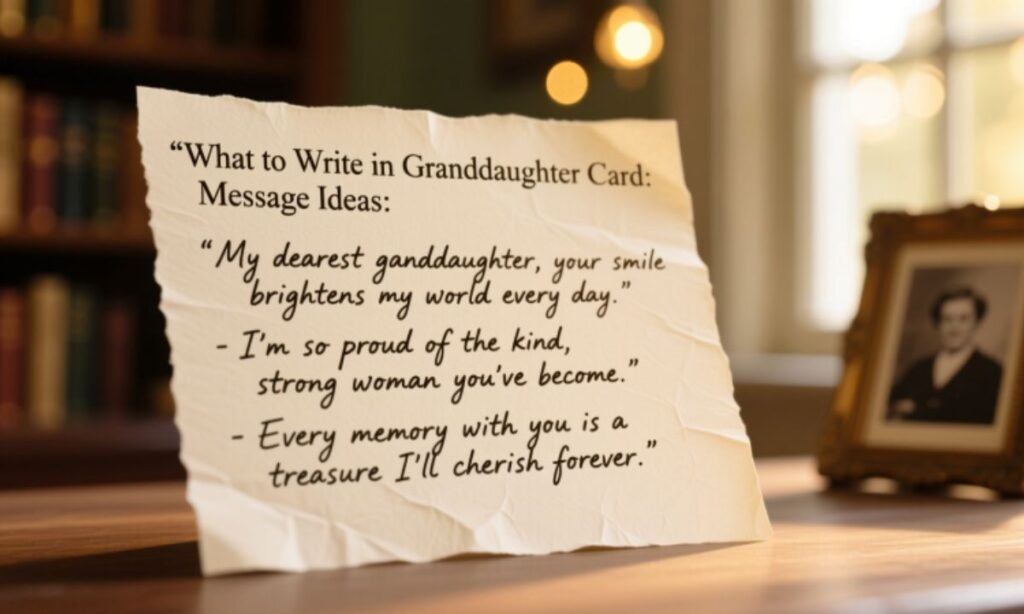 “What to Write in Granddaughter Card:
Message Ideas:
“My dearest ganddaughter, your smile
brightens my world every day.”
- I'm so proud of the kind,
strong woman you've become.”
- Every memory with you is a
treasure I'll cherish forever.”